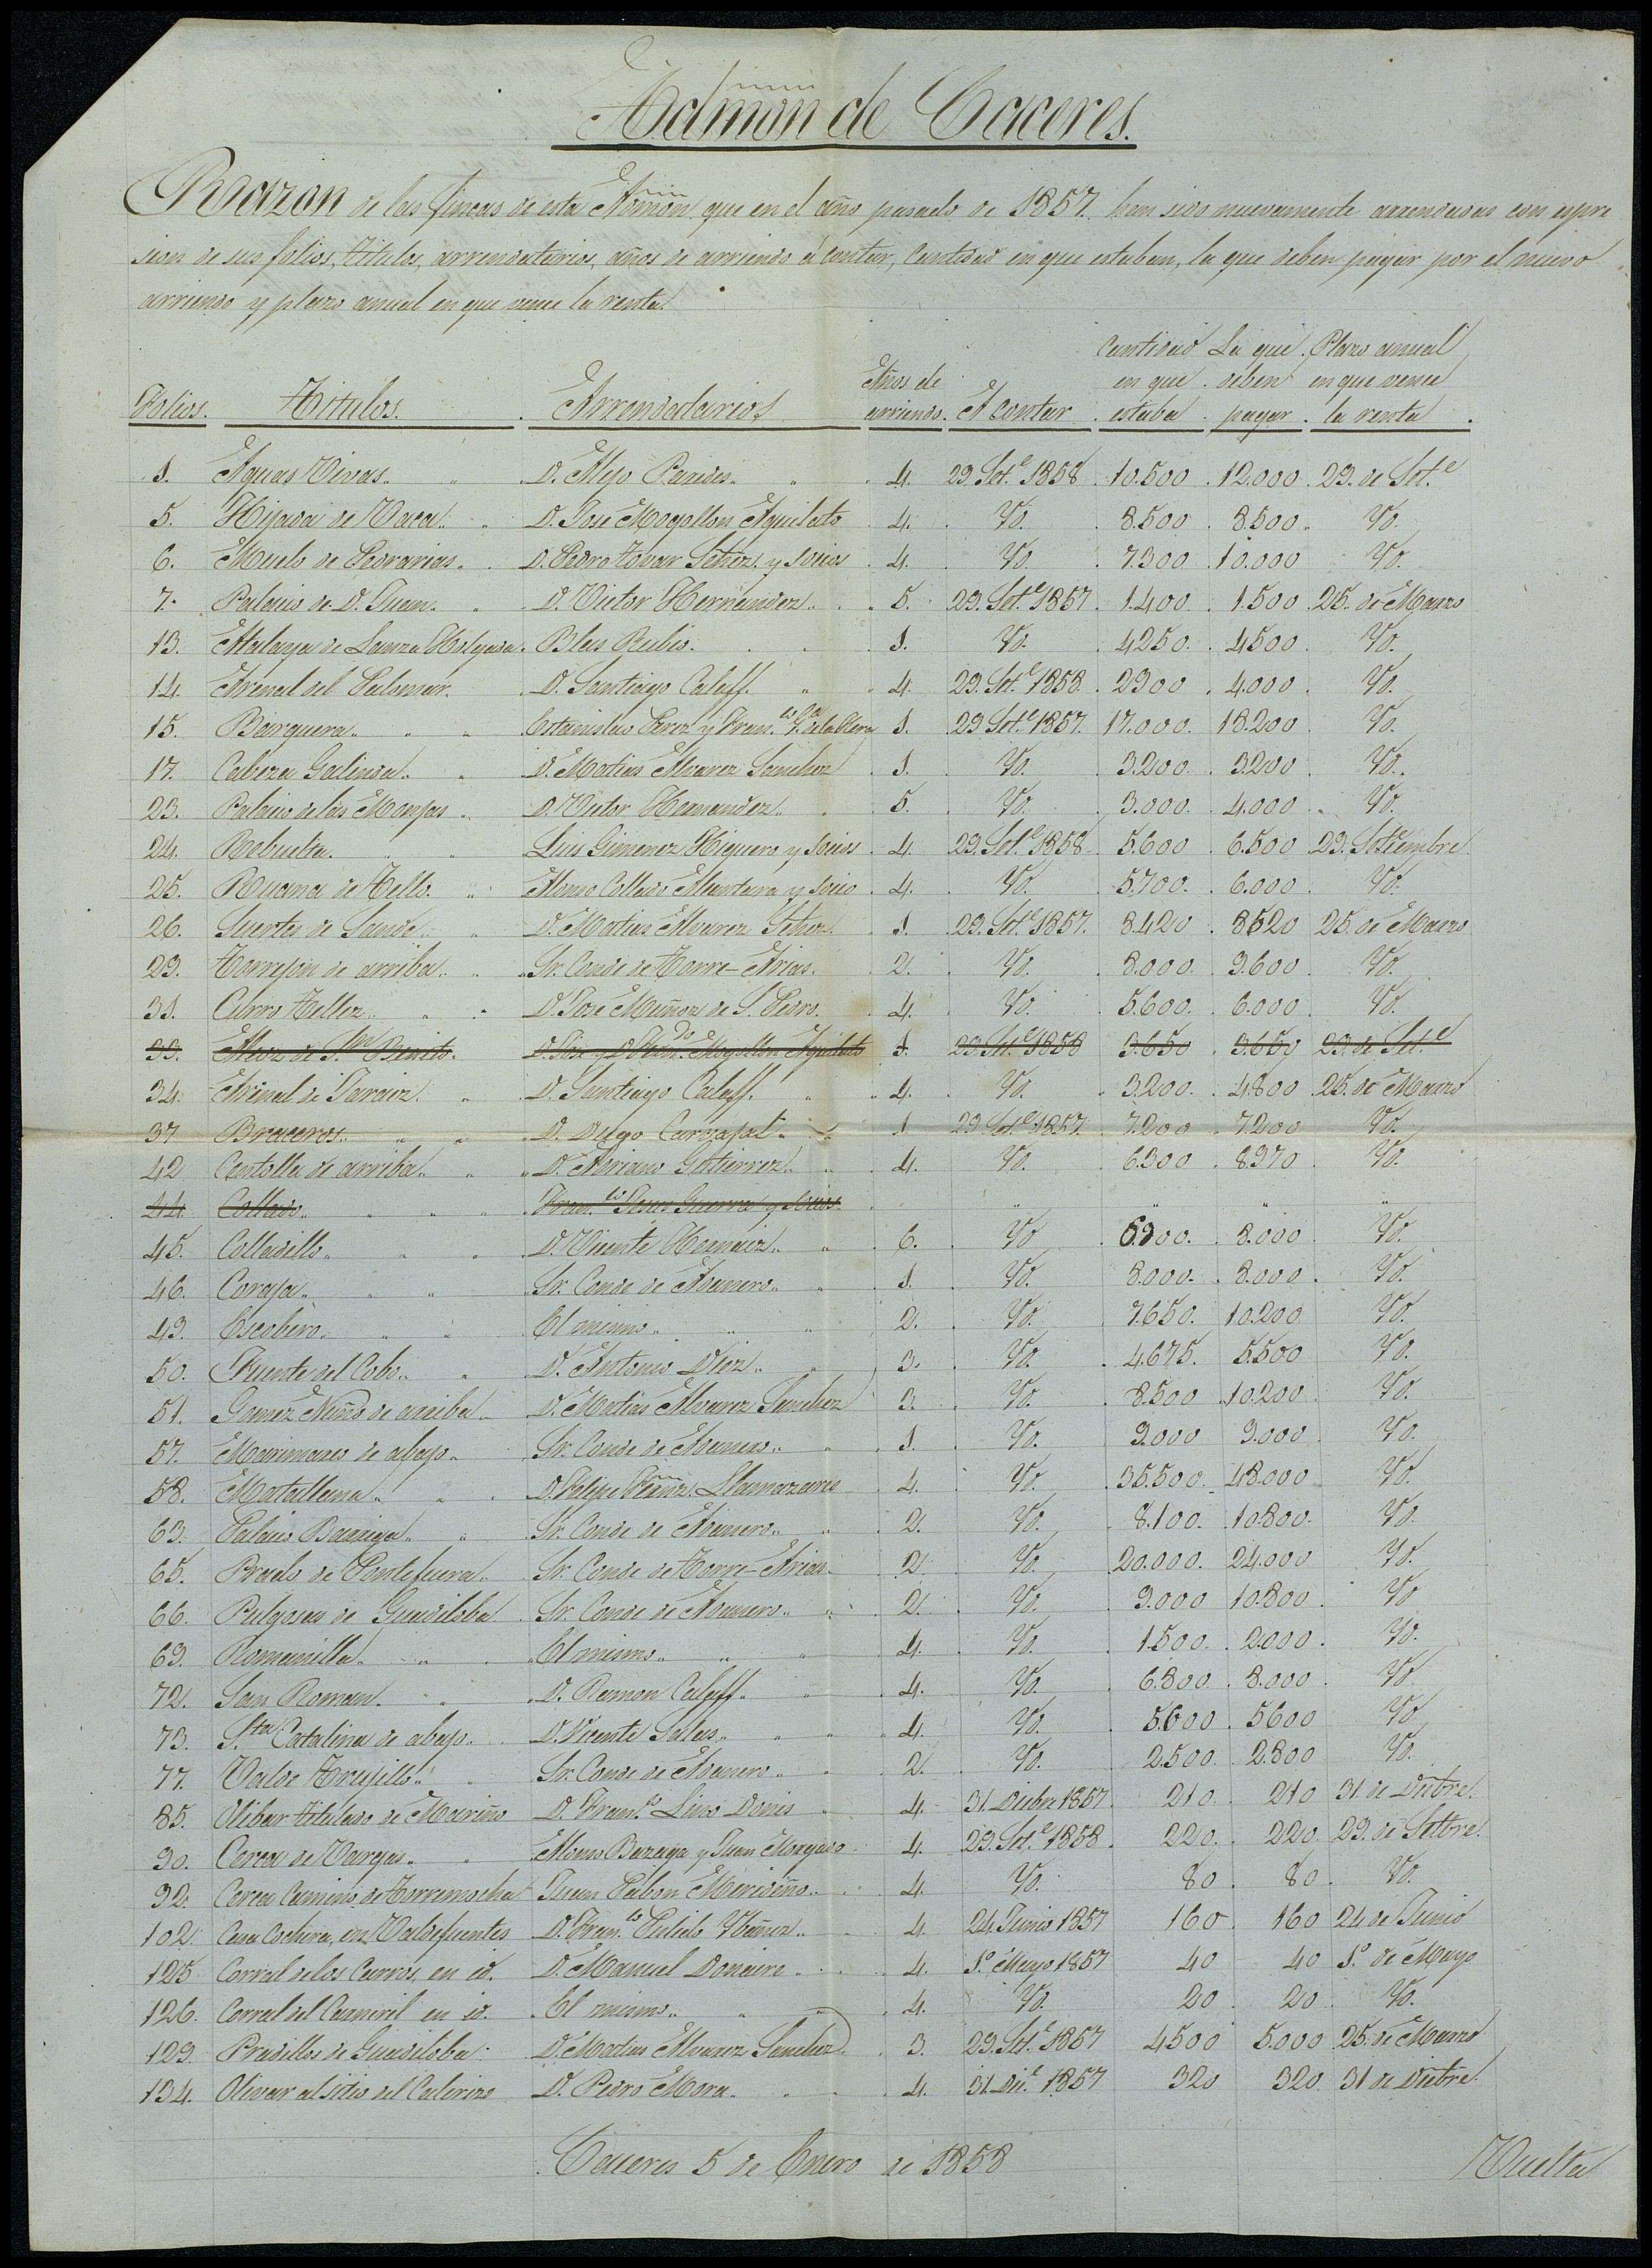 Admon de Caceres.
Razon de las fincas de esta Admon que en el año pasado de 1857. han sido nuevamente arrendadas con espre
sion de sus folios, titulos, arrendatarios, años de arriendo á contar, cantidad en que estaban, la que deben pagar por el nuevo
arriendo y plazo anual en que vence la renta.
Folios. Titulos. Arrendatarios Años de arriendo. A contar Cantidad en que estaba La que deben pagar Plazo anual en que vence la renta
1. Aguas Vivas. D. Alejo Paredes. 4. 29. Set.e 1858 10.500 12.000 29. de Set.e
5. Hijada de Vaca. D. José Mogollon Aguilato 4. Yd. 8.500 8.500 Yd.
6. Muelo de Pedrarias. D. Pedro Tovar Schez. y socios 4. Yd. 7.300 10.000 Yd.
7. Palacio de D. Juan. D. Victor Hernandez. 5. 29. Set.e 1857. 1.400. 1.500 25. de Marzo
13. Atalaya de Lanza Holgada. Blas Rubio. 1. Yd. 4250. 4500. Yd.
14. Arenal del Palomar. D. Santiago Calaff. 4. 29. Set.e 1858. 2900 4.000 Yd.
15. Barquera. Estanislao Perez y Fran.co 1. 29 Set.e 1857. 17.000. 18.200 Yd.
17. Cabeza Galinda. D. Matias Alvarez Sanchez 1. Yd. 3.200. 3.200 Yd.
23. Palacio de las Monjas D. Victor Hernandez. 5. Yd. 3.000. 4.000 Yd.
24. Rebuelta. Luis Gimenez Higuero y socios 4. 29. Set.e 1858 5.600 6.500 29. Setiembre
25. Rucona de Tello. Alonso Collado Alcantara y socio 4. Yd. 5.700. 6.000 Yd.
26. Suertes de Sande. D. Matias Alvarez Schez. 1. 29. Set.e 1857. 8.420 8.520 25. de Marzo
29. Torrejon de arriba. Sr. Conde de Torre-Arias. 2. Yd. 8.000. 9.600 Yd.
31. Carro Tellez. D. José Muñoz de S. Pedro. 4. Yd. 5.600. 6.000 Yd.
33. S.n Benito. D. José y D. Mogollon Aguilato 1. 29. Set.e 1858 3.650 3.650 29. de Set.e
34. Arenal de Jaraiz. D. Santiago Calaff. 4. Yd. 3.200. 4.800 25. de Marzo
37 Braceros. D. Diego Carvajal 1 29 Set.e 1857. 7.200 7.200 Yd.
42 Centolla de arriba. D. Adriano Gutierrez. 4. Yd. 6.300 8.970 Yd.
44 Collado. Fran.co Guerra y socios
45. Colladillo. D. Vicente Hernaiz. 6. Yd 6.900. 8.000 Yd.
46. Coraja. Sr. Conde de Adanero. 1. Yd. 8.000. 8.000 Yd.
49. Escobero. El mismo. 2. Yd. 7.650. 10.200 Yd.
50. Fuente del Cobo. D. Antonio Diez. 3. Yd. 4.675. 5.500 Yd.
51. Gamez Nuño de arriba D. Matias Alvarez Sanchez 3. Yd. 8.500 10.200 Yd.
57. Marimarco de abajo. Sr. Conde de Adanero. 1. Yd. 9.000 9.000 Yd.
58. Matallana D. Felipe Fernz. Llamazares 4. Yd. 35.500. 48.000 Yd.
63. Palacio Barriga. Sr. Conde de Adanero. 2. Yd. 8.100. 10.800. Yd.
65. Prado de Pontefuera. Sr. Conde de Torre-Arias. 2. Yd. 20.000. 24.000 Yd.
66. Pulgosa de Guadiloba Sr. Conde de Adanero. 2. Yd. 9.000 10.800 Yd
69. Romanilla. El mismo. 4. Yd. 1.500. 2.000. Yd.
72. San Roman. D. Ramon Calaff. 4. Yd. 6.800 8.000 Yd
73. S.ta Catalina de abajo. D. Vicente Salas. 4. Yd. 5.600 5600 Yd
77. Valde Trujillo. Sr. Conde de Adanero 2. Yd. 2.500. 2.800 Yd.
85. Olibar titulado de Mariño D. Fran.co Donis 4. 31 Dicbre 1857. 210. 210 31. de Dicbre.
90. Cerca de Vargas. Alonso Bazaga y Juan Morgado 4. 29. Set.e 1858. 220. 220. 29. de Setbre.
92. Cerca Camino de Torremocha Juan Pabon Merideño. 4. Yd. 80. 80. Yd.
102. Casa Cochera, en Valdefuentes D. Fran.co Pulido Ybañez. 4. 24. Junio 1857 160. 160 24 de Junio
125. Corral de los Carros, en id. D. Manuel Donaire. 4. 1.º Mayo 1857 40 40 1.º de Mayo
126. Corral del Carneril en id. El mismo. 4. Yd. 20 20 Yd.
129. Pradillos de Guadiloba. D. Matias Alvarez Sanchez 3. 29. Set.e 1857 4500 5.000 25. de Marzo
134. Olivar al sitio del Calerizo D. Pedro Mora. 4. 31. Dic.e 1857 320 320 31 de Dicbre.
Caceres 5 de Enero de 1858
Vuelta